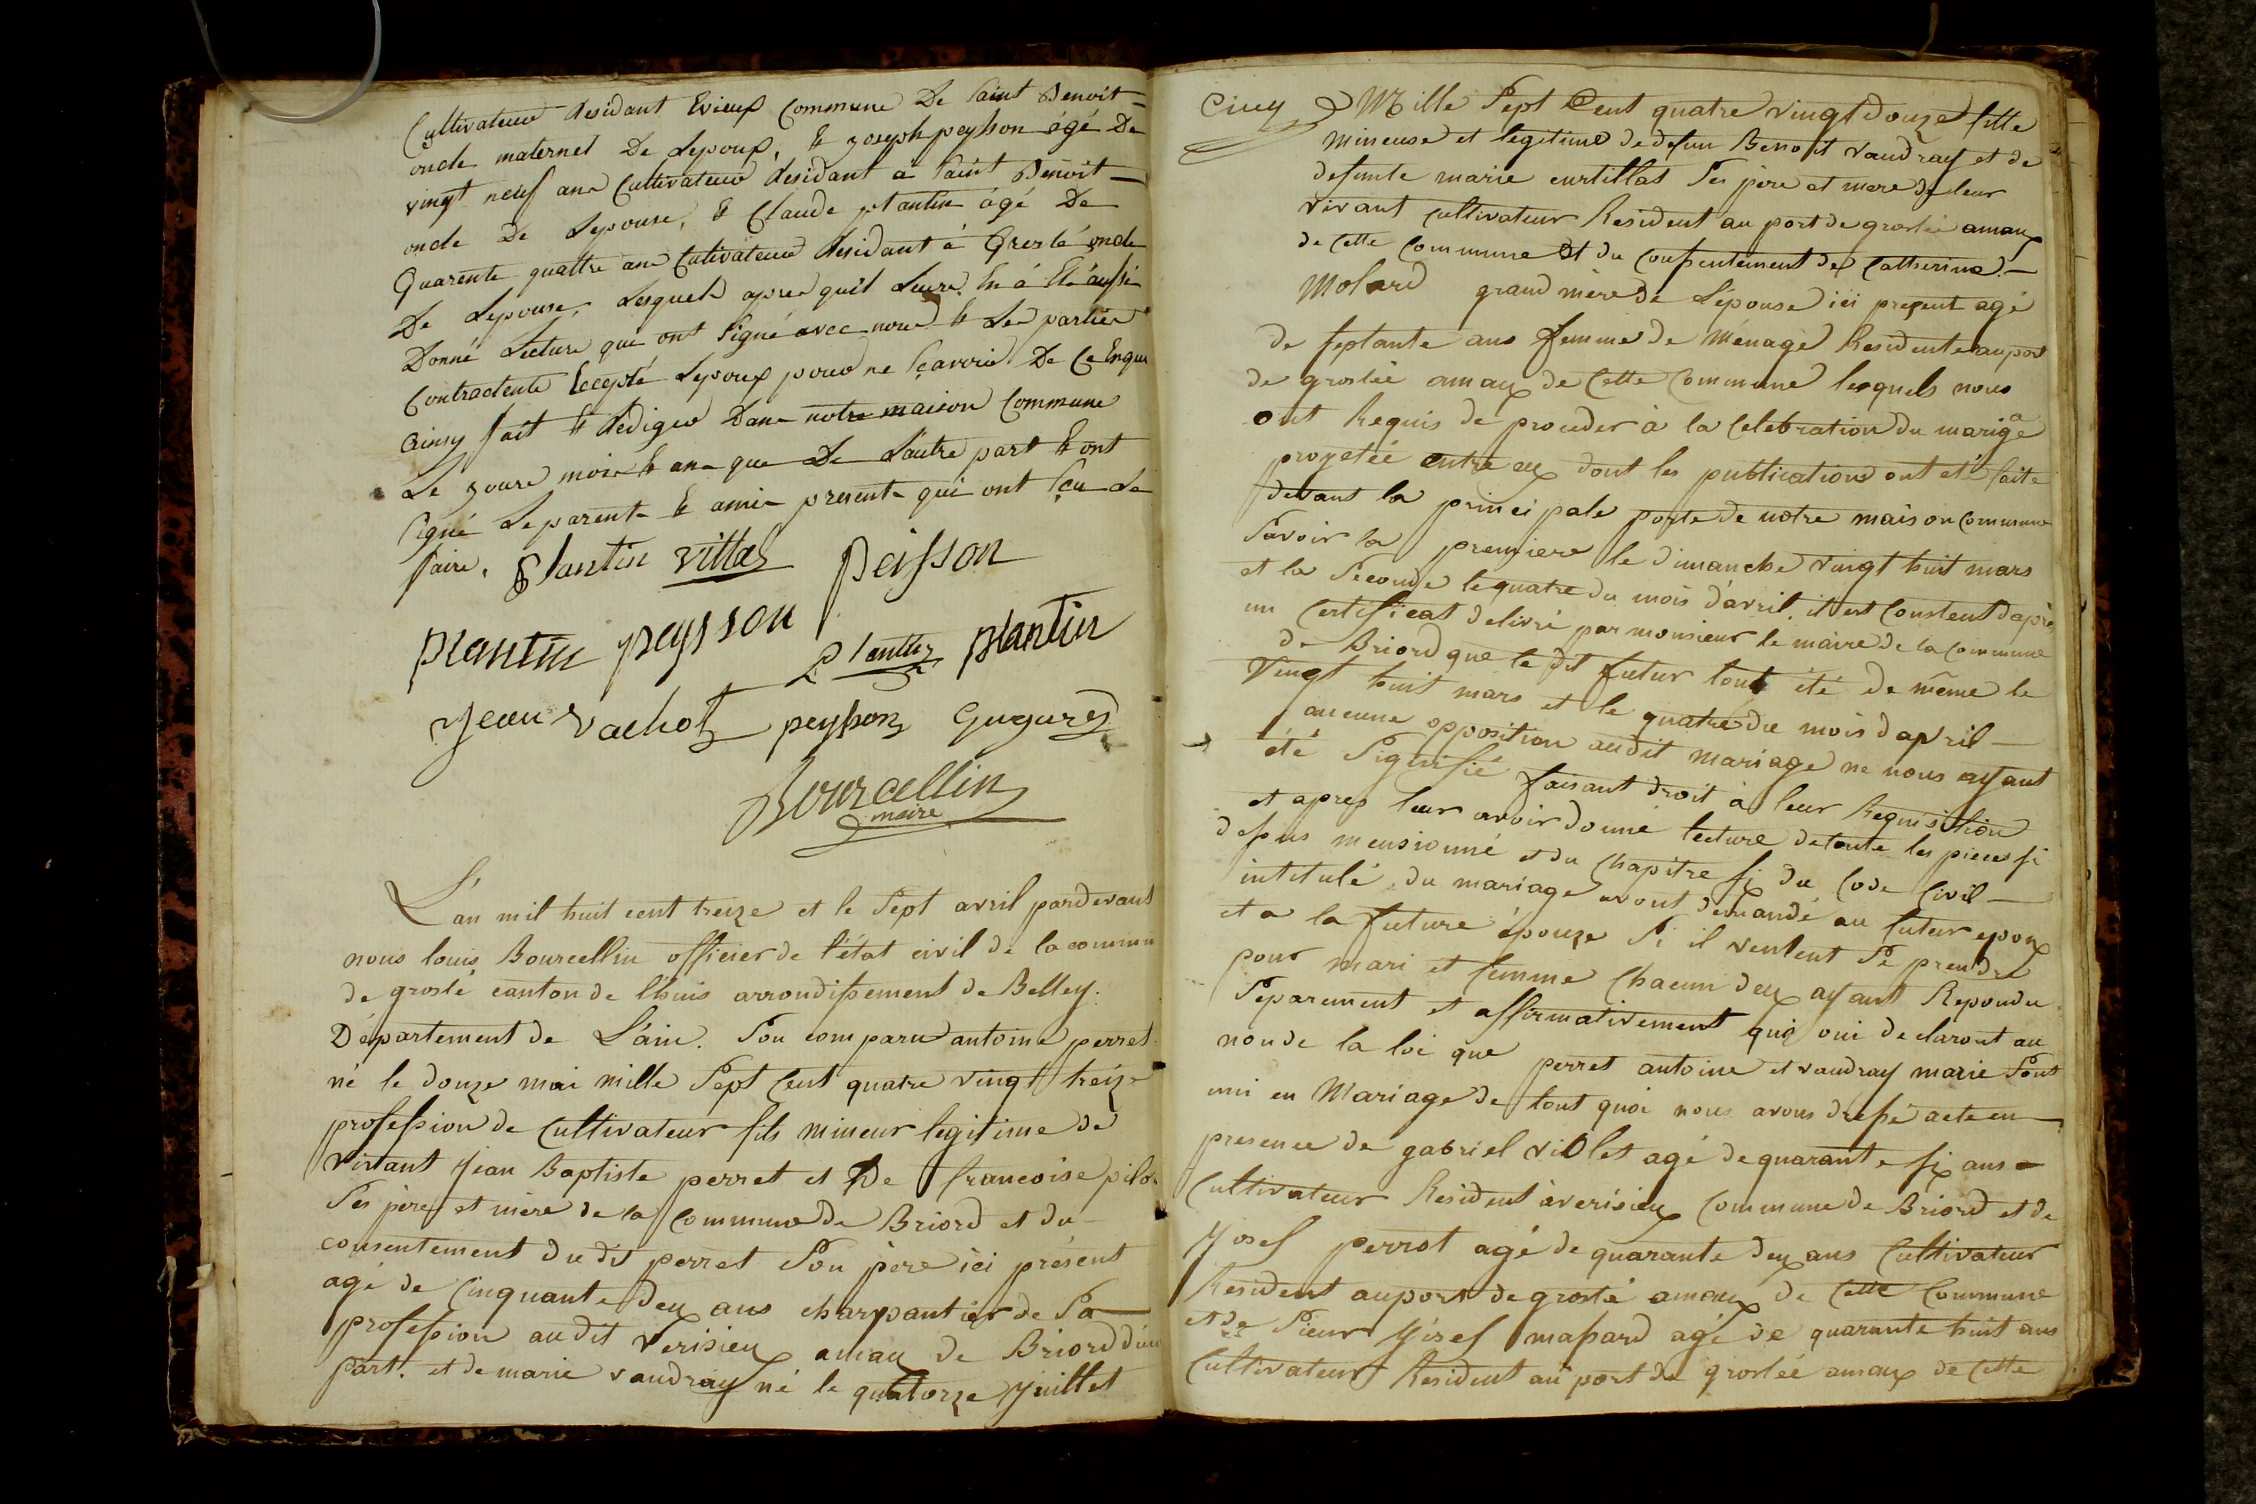 Cultivateur Residant Evieux Commune De Saint Benoit
oncle maternel De Lepoux, & joseph peysson âgé De
vingt neuf ans Cultivateur Residant à Saint Benoit
oncle De Lepouse, & Claude plantin âgé De
Quarente quattre ans Cultivateur Residant à Groslé oncle
De Lepouse, Lesquels après quil Leure En á Eté aussi
Donné Lecture qui ont Signé avec nous & Les parties
Contractente Eccepté Lepoux pour ne Sçavoir De Ce Enquis
ainsy fait & Rédiger Dans notre maison Commune
Le jours mois & ans que De L'autre part & ont
Signé Le parents & amis present qui ont Sçu Le
faire. Plantin villas peisson
plantin peysson Plantin plantin
jean vachot peysson Gugures
Bourcellin
maire
L'an mil huit cent treize et le Sept avril pardevant
nous louis Bourcellin officier de l'état civil de la commun
de groslé canton de lhuis arrondissement de Belley.
Département de L'ain. Son comparu antoine perret
né le douze mai mille Sept Cent quatre vingt treize
profession de Cultivateur fils mineur legitime de
vivant jean Baptiste perret et De francoise pilo
Ses père et mère de la Commune de Briord et du
consentement dudit perret Son père ici présent
agé de Cinquante deux ans charpantier de Sa
profession audit verisieux amaux de Briord d'un
part. et de marie vaudray né le quatorze juillet
Mille Sept Cent quatre vingt douze fille
mineuse et legitime de defun Benoit vaudray et de
defunte marie curtillat Ses père et mere de leur
vivant cultivateur Resident au port de groslée amaux
de Cette Commune Et du Consentement de Catherine
Molard grand mère de L'épouse ici present agé
de septante ans femme de Ménage Residente au port
de groslée amaux de Cette Commune lesquels nous
ont Requis de proceder à la Celebration du mariage
projetée entre eux dont les publications ont eté faite
devant la principale porte de notre maison Commune
Savoir la premiere le dimanche vingt huit mars
et la Seconde le quatre du mois d'avril. il est Constent daprès
un Certificat delivré par monsieur le maire de la Commune
de Briord que le dit futur lont été de même le
vingt huit mars et le quatre du mois d'april
aucune opposition audit mariage ne nous ayant
été Signifié faisant droit à leur Requisition
et apres leur avoir donné lecture de toute les pieces si
dessus mensionné et du Chapitre six du Code Civil
intitulé du mariage avont demandé au futur epoux
et a la future épouze Si il veulent Se prendre
pour mari et femme Chacun deux ayant Repondu
Separement et affirmativement que oui declaront au
non de la loi que perret antoine et vaudray marie Sont
uni en Mariage de tout quoi nous avons dressé acte en
presence de gabriel violet agé de quarante six ans
Cultivateur Resident à verisieux Commune de Briord et de
josef perrot agé de quarante deux ans Cultivateur
Resident au port de groslé amaux de Cette Commune
et de Sieur josef massard agé de quarante huit ans
Cultivateur Resident au port de groslée amaux de Cette